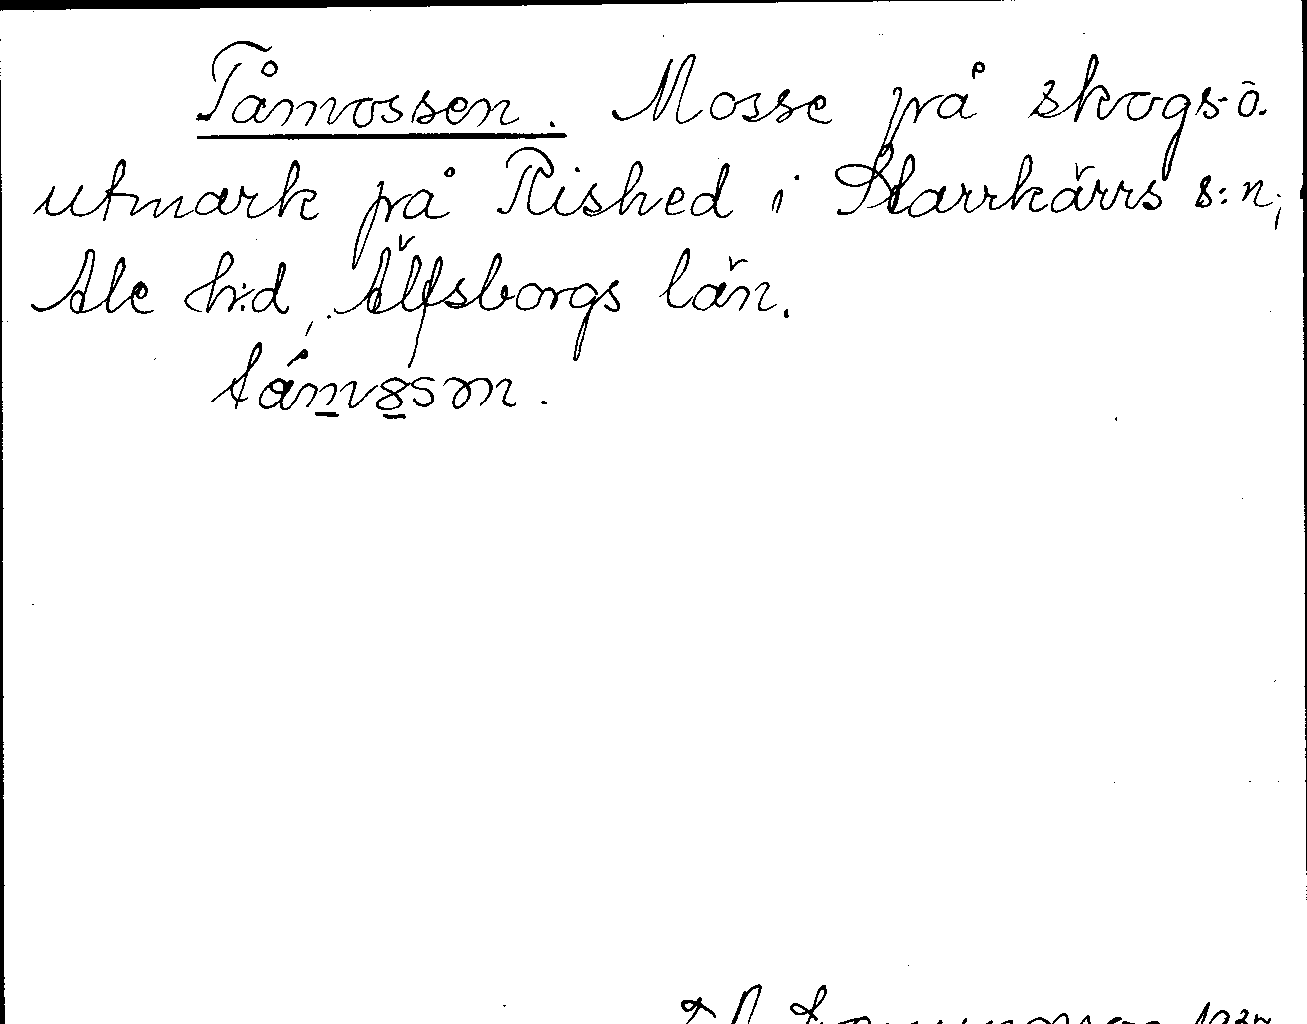 Tåmossen. Mosse på skogs-o.
utmark på Rished i Starrkärrs s:n,
Ale h:d, Älfsborgs län.